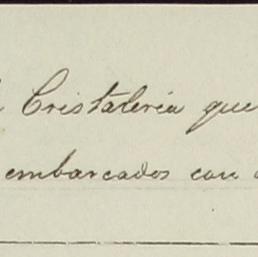 Cristaleria que
embarcados con